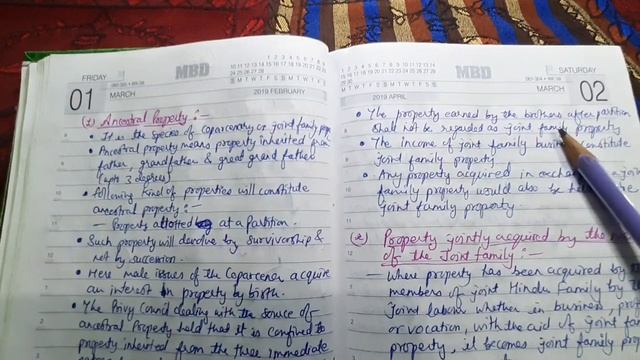 FRIDAY
MBD
01
MARCH
2019 FEBRUARY
S M T W T F S
(1) Ancestral Property :-
• It is the species of Coparcenary or joint family
• Ancestral property means property inherited from
father, grandfather & great grand father
(upto 3 degrees)
• Following kind of properties will constitute
ancestral property :—
— Property allotted at a Partition.
• Such property will devolve by survivorship &
not by succession.
• Here male issues of the Coparcener acquire
an interest in property by birth.
• The Privy Council dealing with the source of
ancestral Property held that it is confined to
property inherited from the three immediate
SATURDAY
MBD
02
MARCH
2019 APRIL
S M T W T F S
• The property earned by the brothers after partition
shall not be regarded as joint family property
• The income of joint family constitute
Joint family property
• Any property acquired in
family property would also be
joint family property.
(2) Property jointly acquired by the
of the Joint family :—
— where property has been acquired by
members of joint Hindu Family by
Joint labour whether in business,
or vocation, with the aid of Joint
property, it becomes joint family